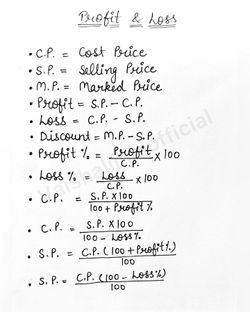 Profit & Loss
• C.P. = Cost Price
• S.P. = Selling Price
• M.P. = Marked Price
• Profit = S.P. - C.P.
• Loss = C.P. - S.P.
• Discount = M.P. - S.P.
• Profit % = Profit/C.P. × 100
• Loss % = Loss/C.P. × 100
• C.P. = S.P. × 100/100 + Profit %
• C.P. = S.P. × 100/100 - Loss %
• S.P. = C.P. (100 + Profit %)/100
• S.P. = C.P. (100 - Loss %)/100